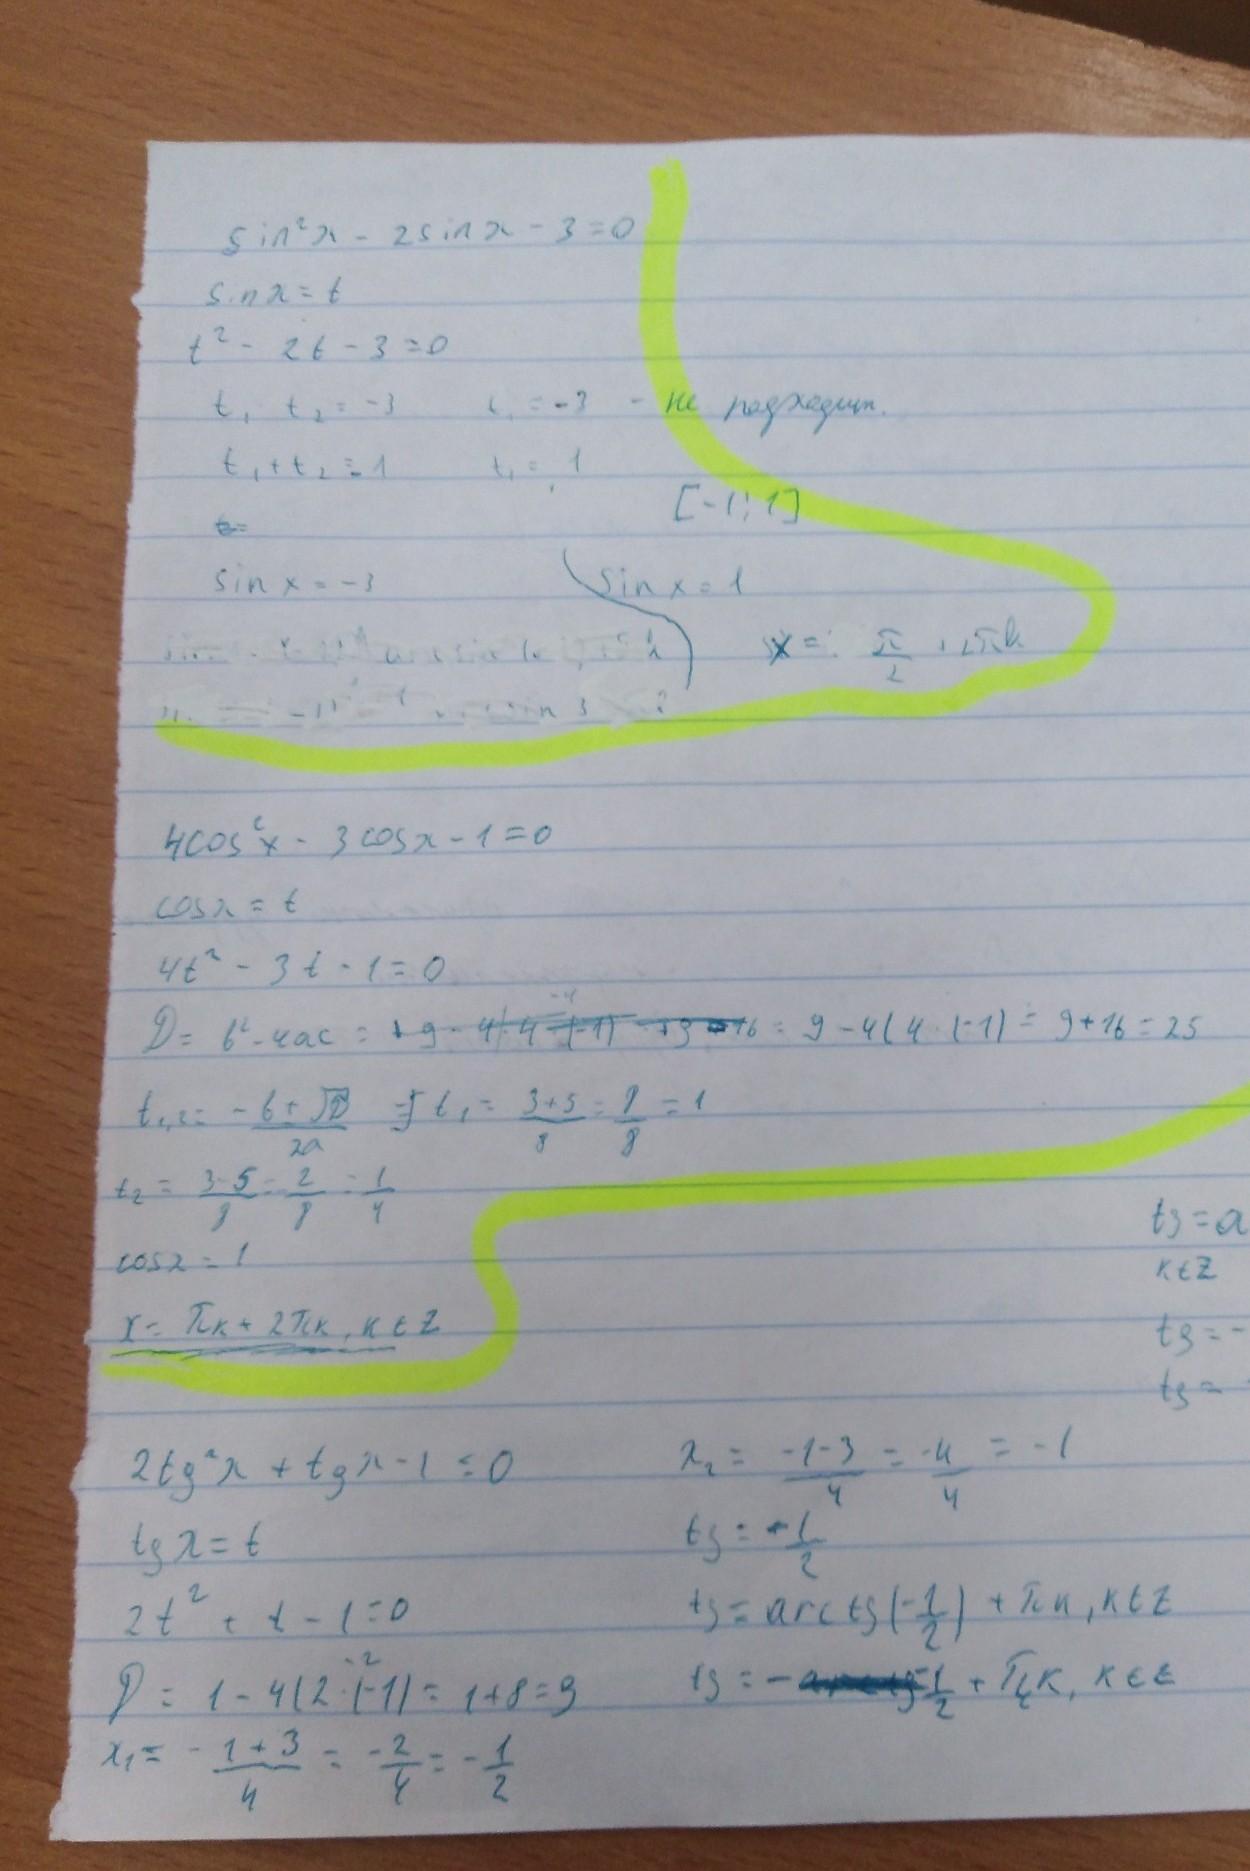 sin²x - 2sinx - 3 = 0
sinx = t
t² - 2t - 3 = 0
t₁ t₂ = -3 t₁ = -3 - не подходит.
t₁ + t₂ = 1 t₁ = 1
[-1; 1]
t =
sin x = -3 sin x = 1
x = π/2 + 2πk
4cos²x - 3cosx - 1 = 0
cosx = t
4t² - 3t - 1 = 0
D = b² - 4ac = = 9 - 4(4·(-1) = 9 + 16 = 25
t₁,₂ = -b ± √D / 2a t₁ = 3+5/8 = 8/8 = 1
t₂ = 3-5/8 = 2/8 = 1/4
cosx = 1
x = πk + 2πk, k ∈ Z
tg = a
k ∈ Z
tg = -
tg =
2tg²x + tgx - 1 = 0
tgx = t
2t² + t - 1 = 0
D = 1 - 4(2·(-1) = 1 + 8 = 9
x₁ = - 1+3/4 = -2/4 = -1/2
x₂ = -1-3/4 = -4/4 = -1
tg = -1/2
tg = arctg(-1/2) + πk, k ∈ Z
tg = - 1/2 + πk, k ∈ Z